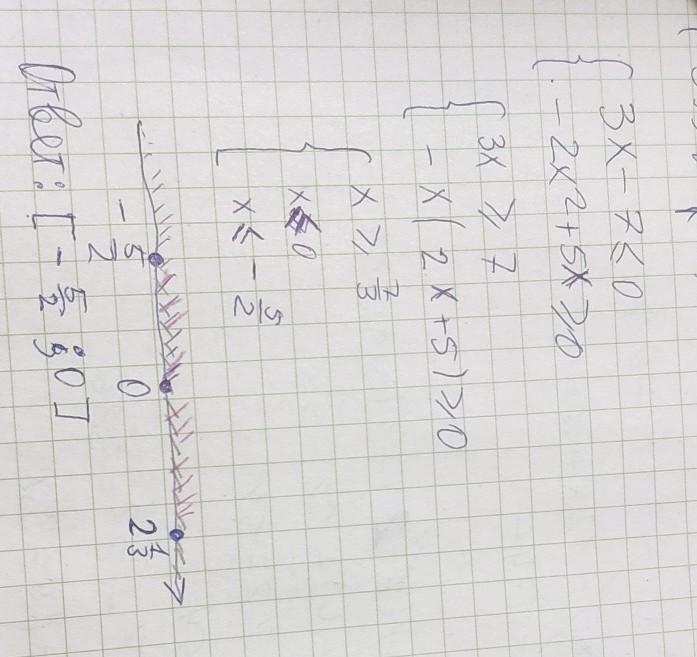 { 3x - 7 ≤ 0
{ - 2x² + 5x ≥ 0
{ 3x ≥ 7
{ - x ( 2x + 5 ) ≥ 0
{ x ≥ 7/3
x 0
x ≤ - 5/2
- 5/2 0 2 1/3
Ответ: [ - 5/2 ; 0 ]